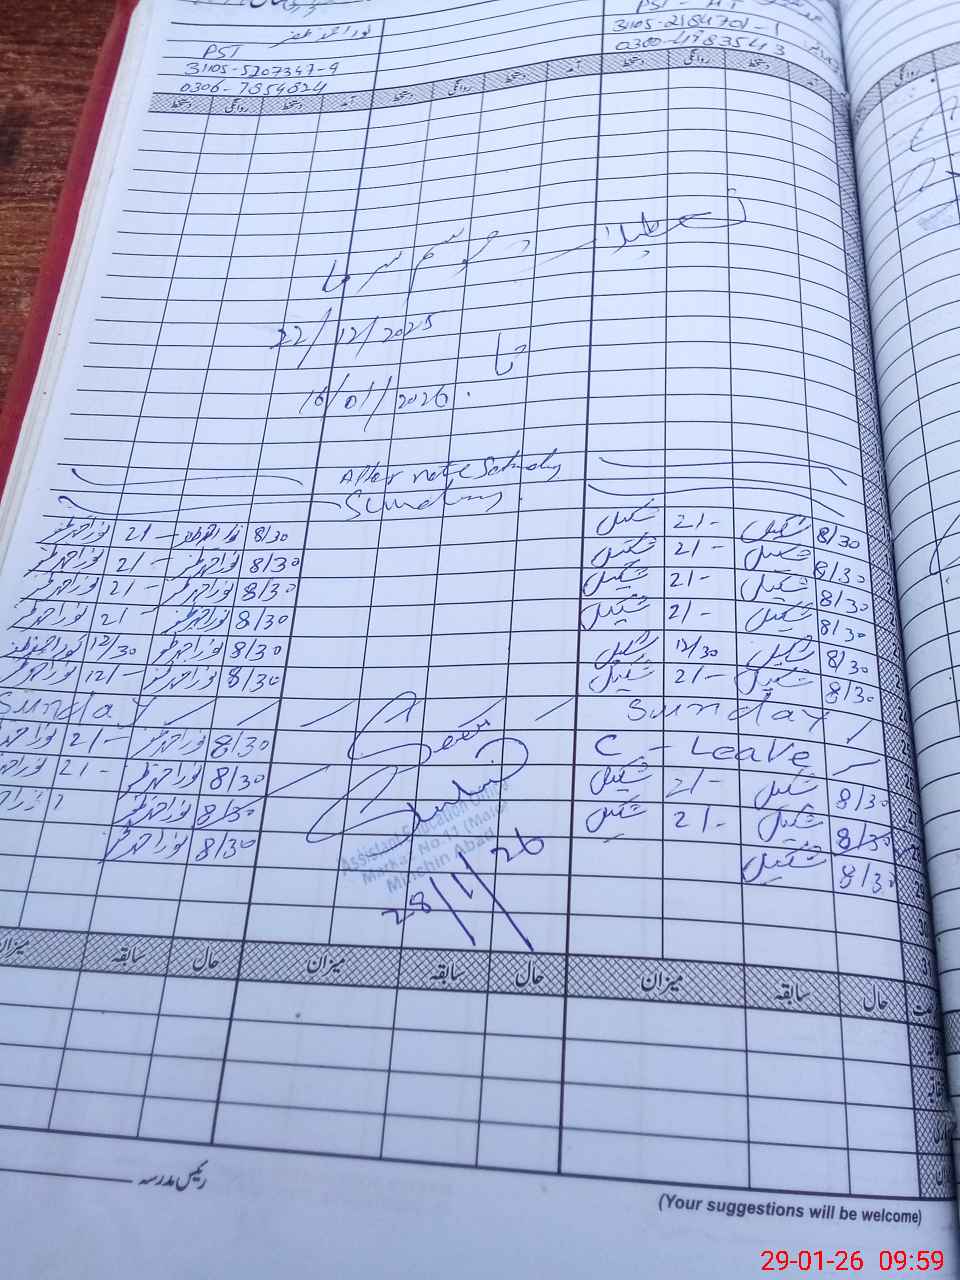 PST
نور احمد ظفر
31105-2184701-1
0300-4783543
PST
31105-5207347-9
0306-7854824
آمد دستخط روانگی دستخط آمد دستخط روانگی دستخط آمد دستخط روانگی دستخط
تعطیلات موسم سرما
22/12/2025
تا
16/01/2026
Alternate Saturday
Sunday
8/30 شکیل 2/- شکیل 8/30 نور احمد ظفر 2/- نور احمد ظفر
8/30 شکیل 2/- شکیل 8/30 نور احمد ظفر 2/- نور احمد ظفر
8/30 شکیل 2/- شکیل 8/30 نور احمد ظفر 2/- نور احمد ظفر
8/30 شکیل 2/- شکیل 8/30 نور احمد ظفر 2/- نور احمد ظفر
8/30 شکیل 12/30 شکیل 8/30 نور احمد ظفر 12/30 نور احمد ظفر
8/30 شکیل 2/- شکیل 8/30 نور احمد ظفر 12/- نور احمد ظفر
Sunday Sunday
C - Leave 8/30 نور احمد ظفر 2/- نور احمد
8/30 شکیل 2/- شکیل 8/30 نور احمد ظفر 2/- نور احمد
8/30 شکیل 2/- شکیل 8/30 نور احمد ظفر
8/30 شکیل 8/30 نور احمد ظفر
Seen
Assistant Education Officer
Markaz No.11 (Male)
Minchin Abad
28/1/26
حال سابقہ میزان حال سابقہ میزان حال سابقہ میزان
رئیس مدرسہ
(Your suggestions will be welcome)
29-01-26 09:59